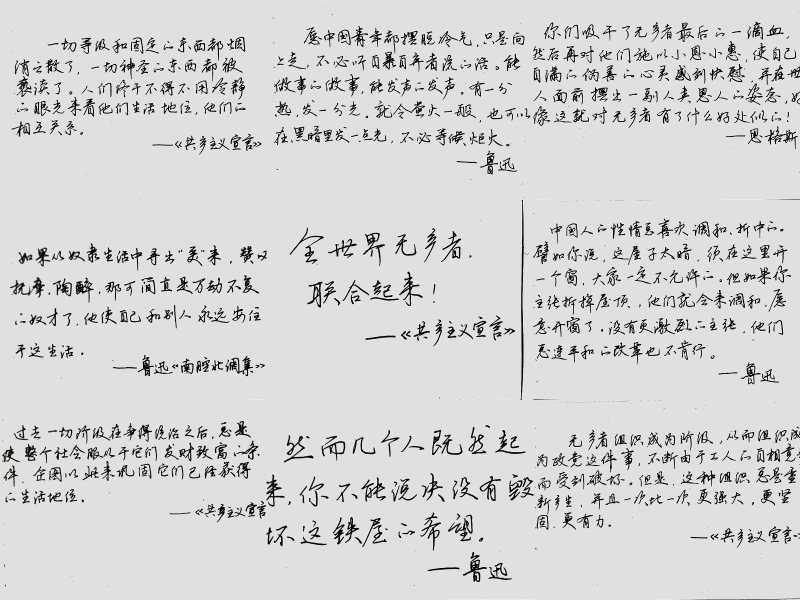 一切等级和固定的东西都烟
消云散了，一切神圣的东西都被
亵渎了。人们终于不得不用冷静
的眼光来看他们生活地位，他们的
相互关系。
——《共产主义宣言》
愿中国青年都摆脱冷气，只是向
上走，不必听自暴自弃者流的话。能
做事的做事，能发声的发声。有一分
热，发一分光。就令萤火一般，也可以
在黑暗里发一点光，不必等候炬火。
——鲁迅
你们吸干了无产者最后的一滴血，
然后再对他们施以小恩小惠，使自己
自满的伪善的心灵感到快慰，并在世
人面前摆出一副人类恩人的姿态，好
像这就对无产者有了什么好处似的！
——恩格斯
如果从奴隶生活中寻出“美”来，赞叹
抚摩，陶醉，那可简直是万劫不复
的奴才了，他使自己和别人永远安住
于这生活。
——鲁迅《南腔北调集》
全世界无产者，
联合起来！
——《共产主义宣言》
中国人的性情总喜欢调和、折中的。
譬如你说，这屋子太暗，须在这里开
一个窗，大家一定不允许的。但如果你
主张拆掉屋顶，他们就会来调和，愿
意开窗了。没有更激烈的主张，他们
总连平和的改革也不肯行。
——鲁迅
过去一切阶级在争得统治之后，总是
使整个社会服从于它们发财致富的条
件，企图以此来巩固它们已经获得
的生活地位。
——《共产主义宣言
然而几个人既然起
来，你不能说决没有毁
坏这铁屋的希望。
——鲁迅
无产者组织成为阶级，从而组织成
为政党这件事，不断由于工人的自相竞争
而受到破坏。但是，这种组织总是重
新产生，并且一次比一次更强大，更坚
固，更有力。
——《共产主义宣言》